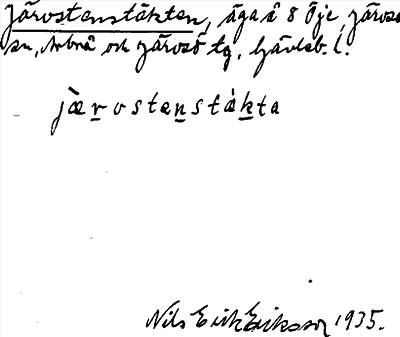 Järvstenstäkten, äga å 8 Öje, Järvsö
sn, Arbrå och Järvsö tg, Gävleb. l.
jæ̀rvstenstákta
Nils Erik Eriksson 1935.